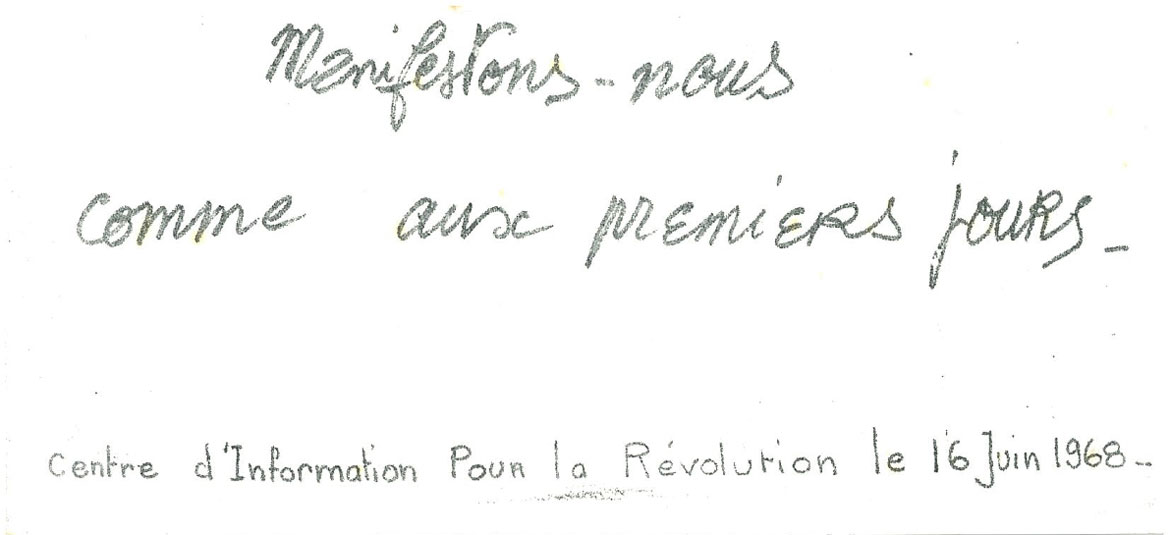 Manifestons-nous
comme aux premiers jours_
Centre d'Information Pour la Révolution le 16 Juin 1968_